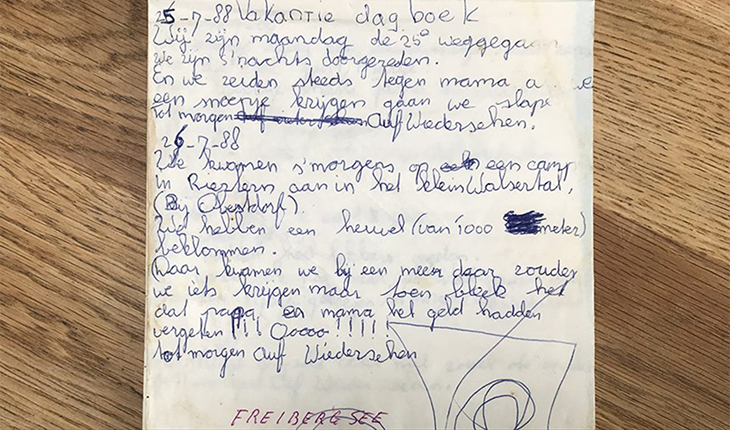 25-7-88 Vakantie dagboek
Wij zijn maandag de 25e weggegaan
We zijn s'nachts doorgereden.
En we zeiden steeds tegen mama a
een snoepje krijgen gaan we slape
tot morgen Auf Wiedersehen.
26-7-88
We kwamen s'morgens op een camp
in Riezlern aan in het KleinWalsertal,
(Bij Obestdorf).
We hebben een heuvel (van 1000 meter)
beklommen.
Daar kwamen we bij een meer daar zouden
we iets krijgen maar toen bleek het
dat papa en mama het geld hadden
vergeten!!! Ooooo!!!!!
tot morgen Auf Wiedersehen
FREIBERGSEE